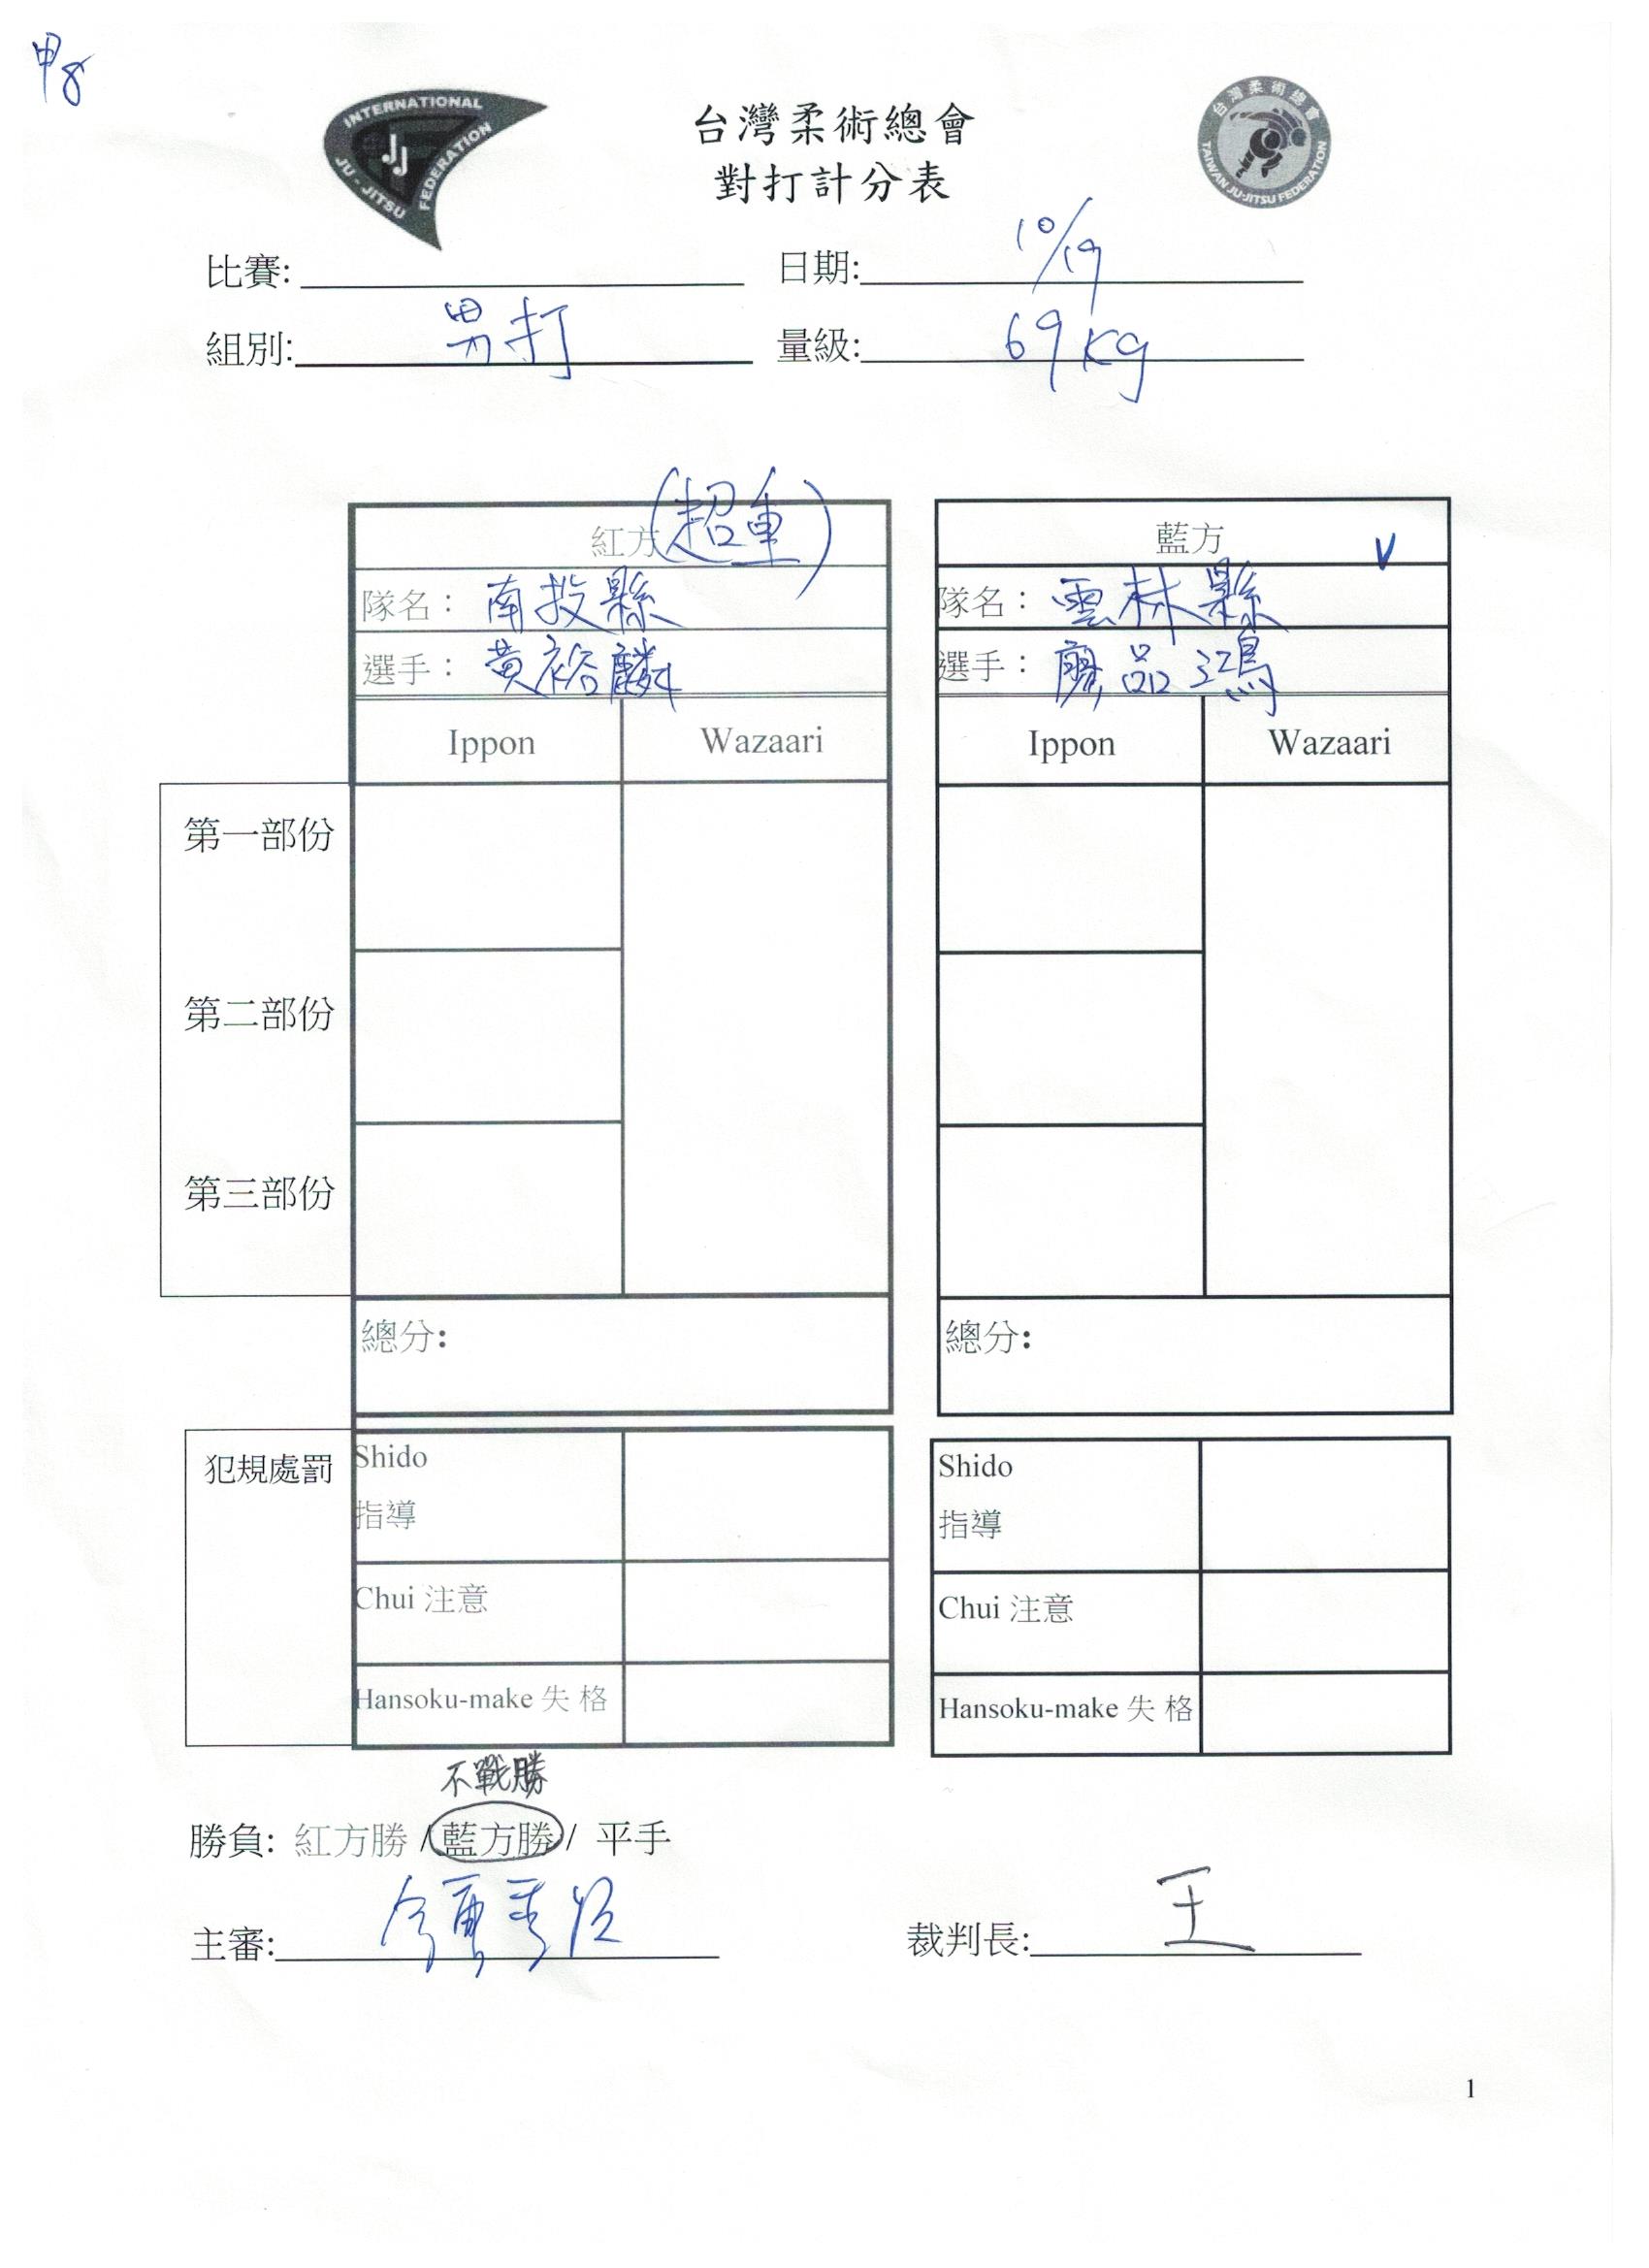 甲8
INTERNATIONAL
JJ
JU-JITSU FEDERATION
台灣柔術總會
對打計分表
台灣柔術總會
TAIWAN JU-JITSU FEDERATION
比賽: 日期: 10/19
組別: 男打 量級: 69kg
紅方 (超重) 藍方 V
隊名: 南投縣 隊名: 雲林縣
選手: 黃裕麟 選手: 廖品鴻
Ippon Wazaari Ippon Wazaari
第一部份
第二部份
第三部份
總分: 總分:
犯規處罰 Shido Shido
指導 指導
Chui 注意 Chui 注意
Hansoku-make 失 格 Hansoku-make 失 格
不戰勝
勝負: 紅方勝 / 藍方勝 / 平手
主審: 裁判長: 王
1